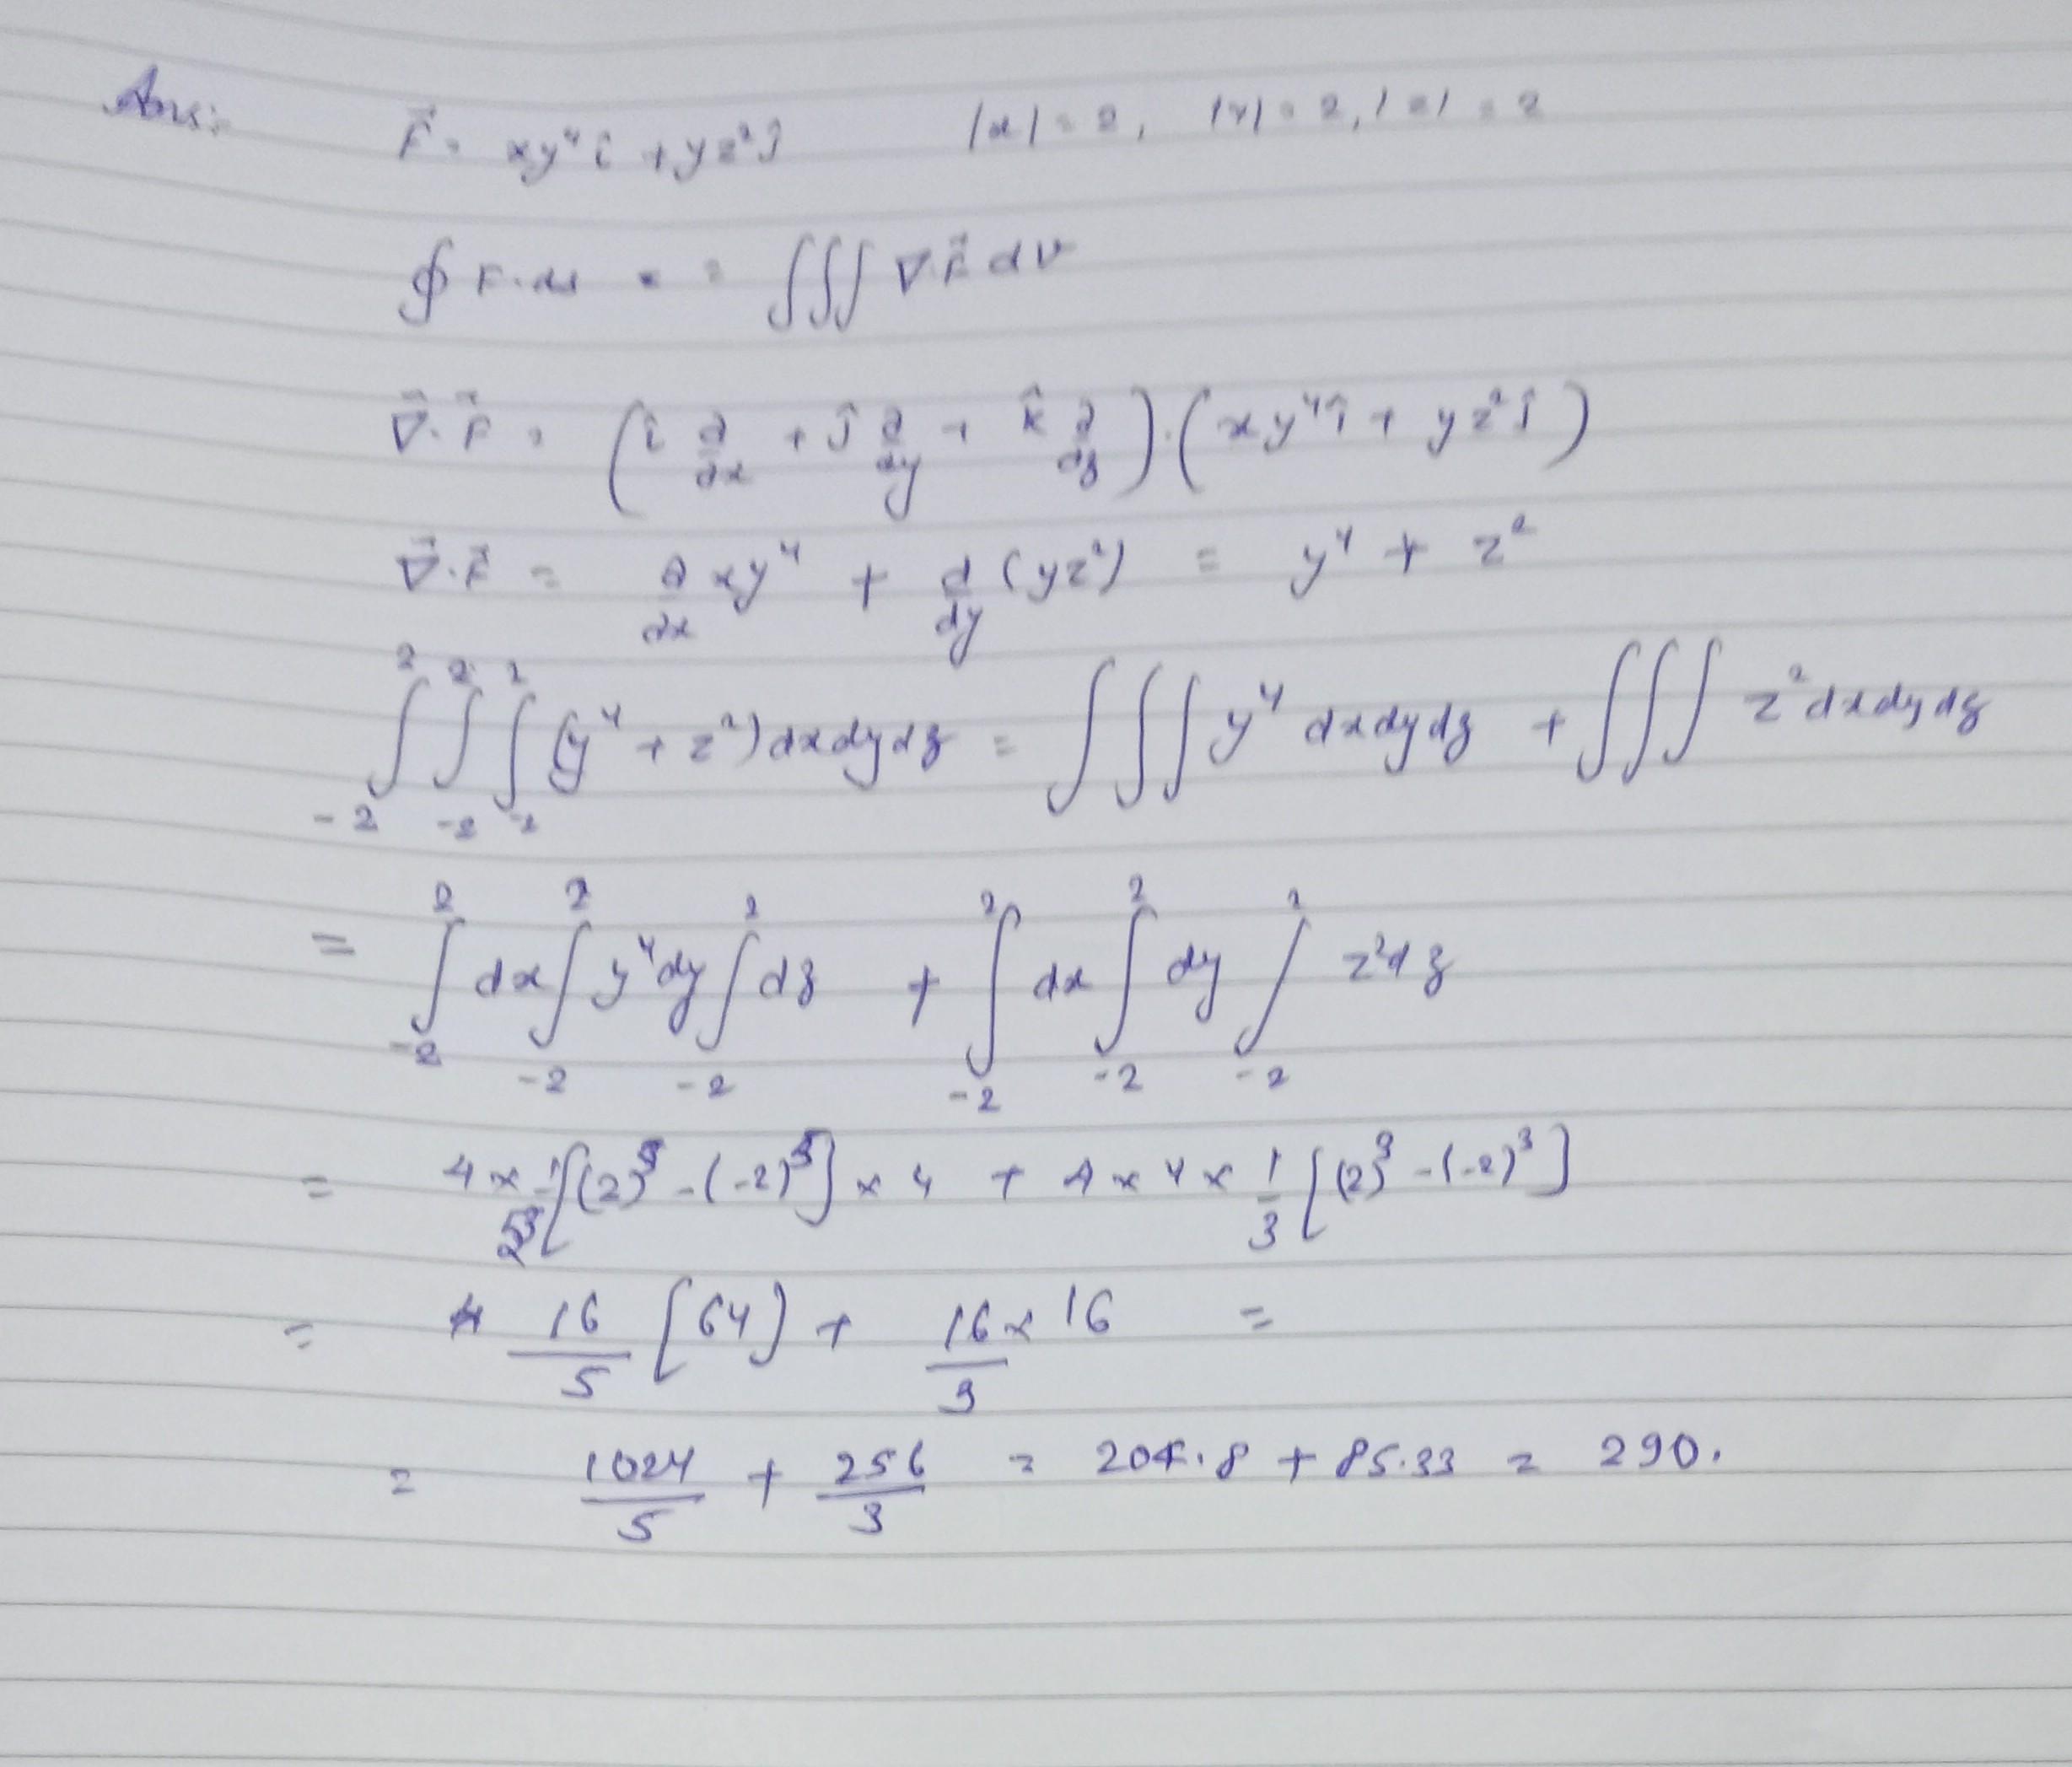 Ans:
F⃗ = xy⁴ î + yz² ĵ |x| = 2, |y| = 2, |z| = 2
∮ F.ds = = ∫∫∫ ∇.F⃗ dv
∇⃗.F⃗ = (î ∂/∂x + ĵ ∂/∂y + k̂ ∂/∂z).(xy⁴ î + yz² ĵ)
∇⃗.F⃗ = ∂/∂x xy⁴ + d/dy (yz²) = y⁴ + z²
∫₋₂² ∫₋₂² ∫₋₂² (y⁴ + z²) dxdydz = ∫∫∫ y⁴ dxdydz + ∫∫∫ z² dxdydz
= ∫₋₂² dx ∫₋₂² y⁴dy ∫₋₂² dz + ∫₋₂² dx ∫₋₂² dy ∫₋₂² z²dz
= 4 × 1/5 [(2)⁵ - (-2)⁵] × 4 + 4 × 4 × 1/3 [(2)³ - (-2)³]
= 16/5 [64] + 16/3 × 16 =
= 1024/5 + 256/3 = 204.8 + 85.33 = 290.